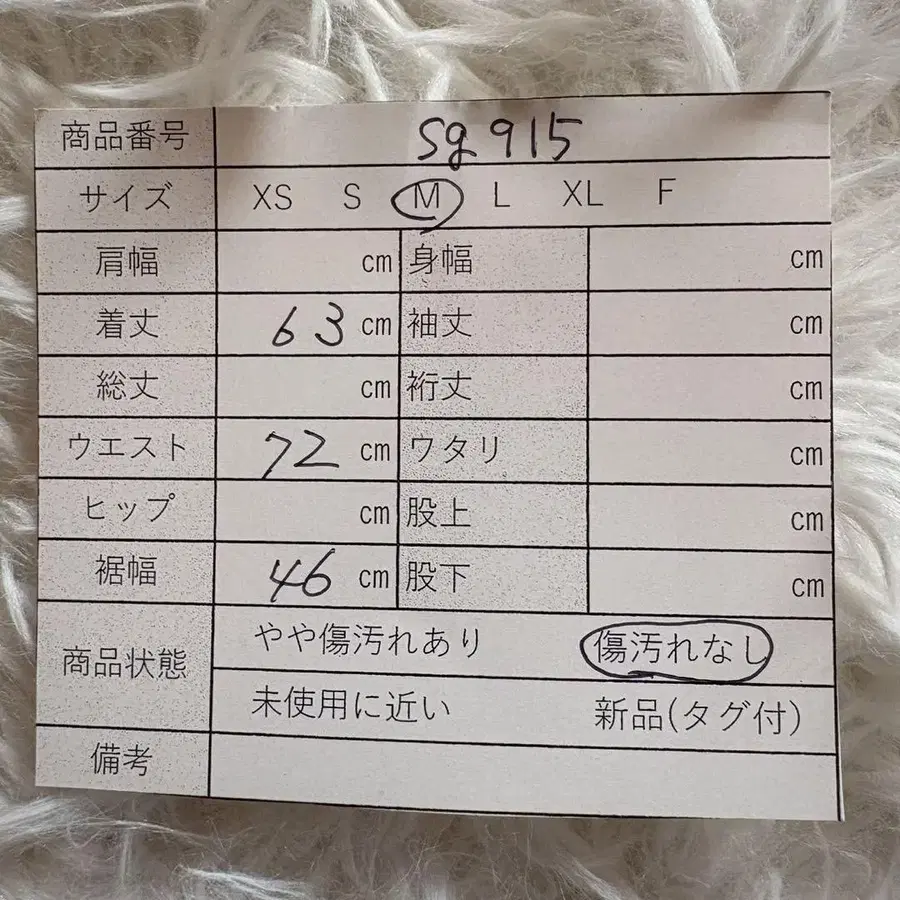 商品番号 sg915
サイズ XS S M L XL F
肩幅 cm 身幅 cm
着丈 63 cm 袖丈 cm
総丈 cm 裄丈 cm
ウエスト 72 cm ワタリ cm
ヒップ cm 股上 cm
裾幅 46 cm 股下 cm
商品状態 やや傷汚れあり 傷汚れなし
未使用に近い 新品(タグ付)
備考